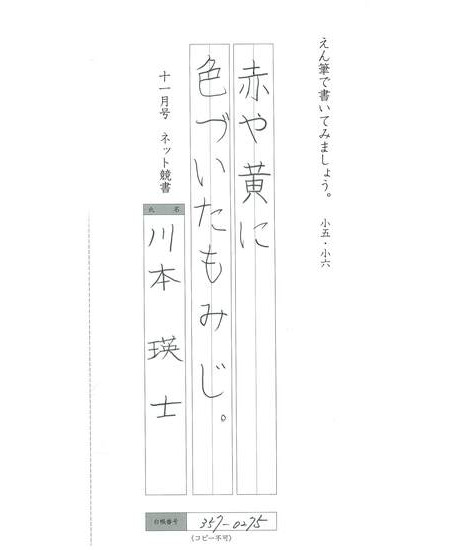 えん筆で書いてみましょう。 小五・小六
赤や黄に
色づいたもみじ。
十一月号 ネット競書
氏名
川本 瑛士
台帳番号 357-0275
(コピー不可)